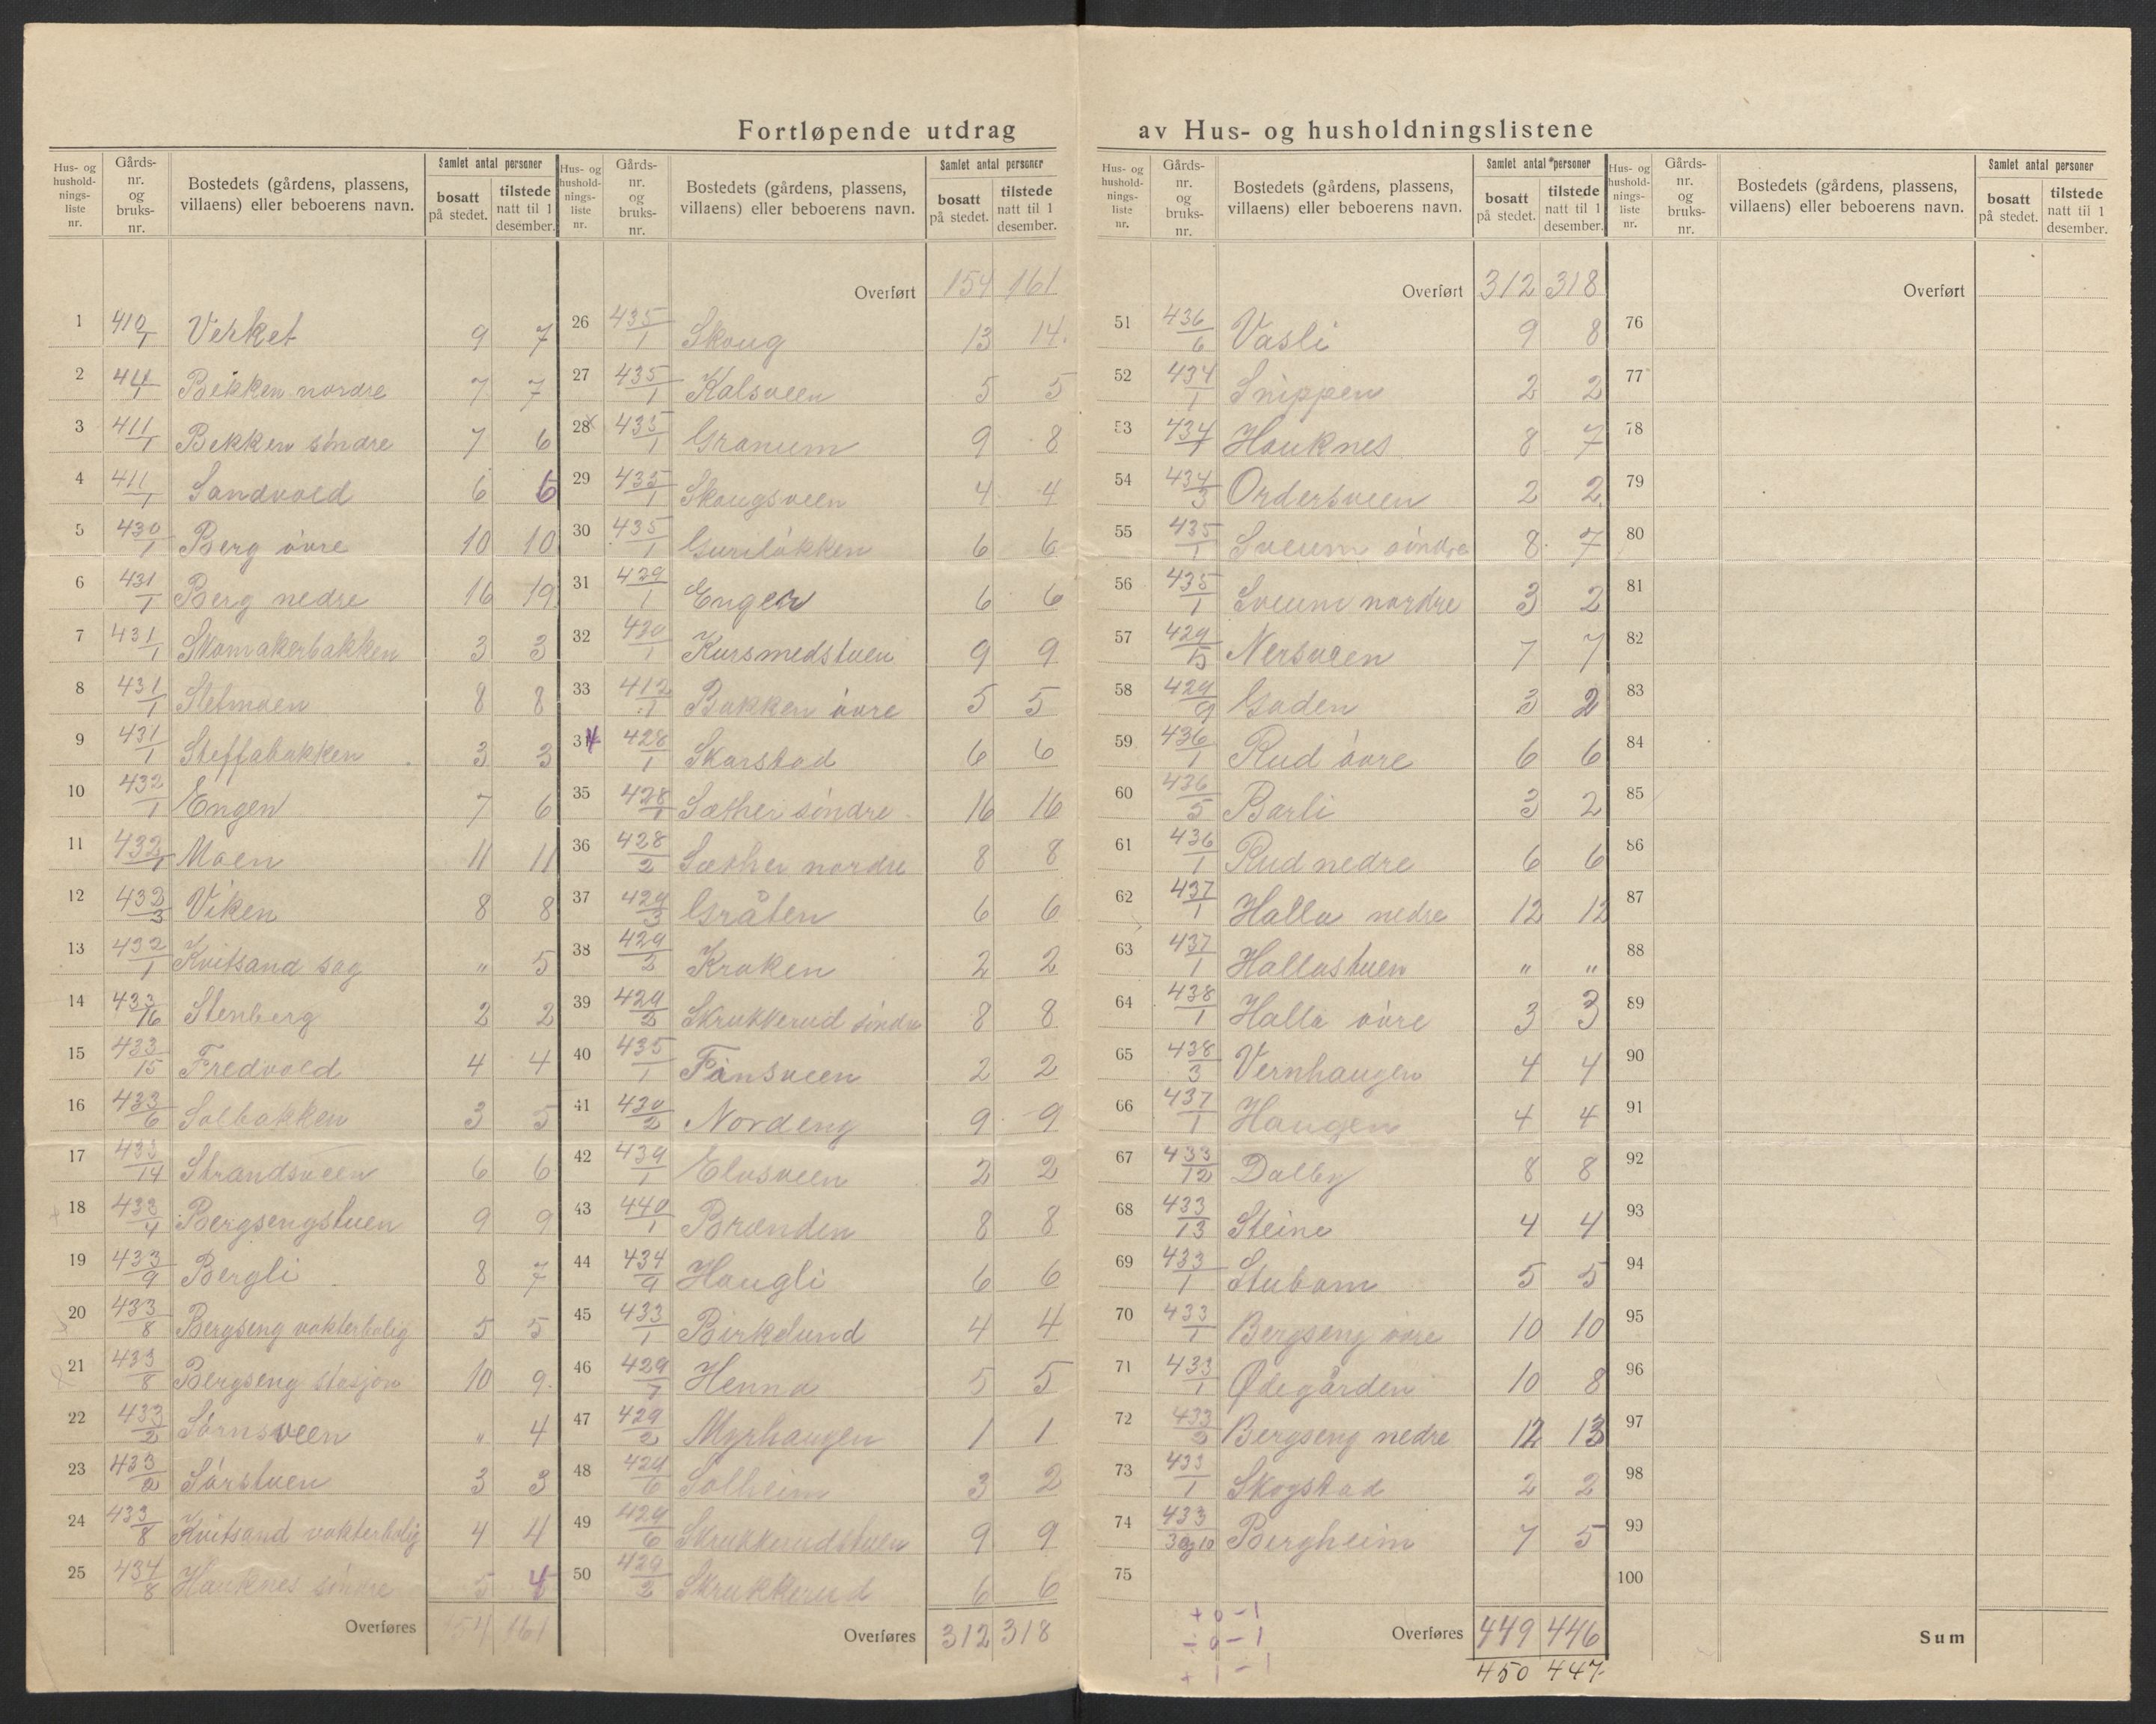 Fortløpende utdrag av Hus- og husholdningslistene
Hus- og hushold- nings- liste nr. | Gårds- nr. og bruks- nr. | Bostedets (gårdens, plassens, villaens) eller beboerens navn. | Samlet antal personer | bosatt på stedet. | tilstede natt til 1 desember.
1 410/1 Verket 9 7
2 411/1 Bekken nordre 7 7
3 411/1 Bekken søndre 7 6
4 411/1 Sandvold 6 6
5 430/1 Berg øvre 10 10
6 431/1 Berg nedre 16 19
7 431/1 Skomakerbakken 3 3
8 431/1 Sletmoen 8 8
9 431/1 Steffabakken 3 3
10 432/1 Engen 7 6
11 432/1 Moen 11 11
12 432/3 Viken 8 8
13 432/1 Kvitsand sag " 5
14 433/16 Stenberg 2 2
15 433/15 Fredvold 4 4
16 433/6 Solbakken 3 5
17 433/14 Strandsveen 6 6
18 433/4 Bergsengstuen 9 9
19 433/9 Bergli 8 7
20 433/8 Bergseng vokterbolig 5 5
21 433/8 Bergseng stasjon 10 9
22 433/2 Sørnsveen " 4
23 433/2 Sørstuen 3 3
24 433/8 Kvitsand vokterbolig 4 4
25 434/8 Hauknes søndre 5 4
Overføres 154 161
Hus- og hushold- nings- liste nr. | Gårds- nr. og bruks- nr. | Bostedets (gårdens, plassens, villaens) eller beboerens navn. | Samlet antal personer | bosatt på stedet. | tilstede natt til 1 desember.
Overført 154 161
26 435/1 Skoug 13 14
27 435/1 Kalsveen 5 5
28 x 435/1 Granum 9 8
29 435/1 Skougsveen 4 4
30 435/1 Guriløkken 6 6
31 429/1 Engen 6 6
32 430/1 Kursmedstuen 9 9
33 412/1 Bakken øvre 5 5
34 428/1 Skarstad 6 6
35 428/1 Sæther søndre 16 16
36 428/2 Sæther nordre 8 8
37 429/3 Gråten 6 6
38 429/2 Kraken 2 2
39 429/2 Skrukkerud søndre 8 8
40 435/1 Finsveen 2 2
41 430/2 Nordeng 9 9
42 439/1 Elvsveen 2 2
43 440/1 Brænden 8 8
44 434/9 Haugli 6 6
45 433/1 Birkelund 4 4
46 429/7 Henna 5 5
47 429/2 Myrhaugen 1 1
48 429/6 Solheim 3 2
49 429/6 Skrukkerudstuen 9 9
50 429/2 Skrukkerud 6 6
Overføres 312 318
Hus- og hushold- nings- liste nr. | Gårds- nr. og bruks- nr. | Bostedets (gårdens, plassens, villaens) eller beboerens navn. | Samlet antal personer | bosatt på stedet. | tilstede natt til 1 desember.
Overført 312 318
51 436/6 Vasli 9 8
52 434/1 Snippen 2 2
53 434/1 Hauknes 8 7
54 434/3 Ordersveen 2 2
55 435/1 Sveum søndre 8 7
56 435/1 Sveum nordre 3 2
57 429/5 Nersveen 7 7
58 429/9 Gaden 3 2
59 436/1 Rud øvre 6 6
60 436/5 Barli 3 2
61 436/1 Rud nedre 6 6
62 437/1 Halla nedre 12 12
63 437/1 Hallastuen " "
64 438/1 Halla øvre 3 3
65 438/3 Vernhaugen 4 4
66 437/1 Haugen 4 4
67 433/12 Dalby 8 8
68 433/13 Steine 4 4
69 433/1 Stubom 5 5
70 433/1 Bergseng øvre 10 10
71 433/1 Ødegården 10 8
72 433/2 Bergseng nedre 12 13
73 433/1 Skogstad 2 2
74 433/3 og 10 Bergheim 7 5
75
+ 0 - 1
÷ 0 - 1
+ 1 - 1
Overføres 449 446
450 447
Hus- og hushold- nings- liste nr. | Gårds- nr. og bruks- nr. | Bostedets (gårdens, plassens, villaens) eller beboerens navn. | Samlet antal personer | bosatt på stedet. | tilstede natt til 1 desember.
Overført
76
77
78
79
80
81
82
83
84
85
86
87
88
89
90
91
92
93
94
95
96
97
98
99
100
Sum